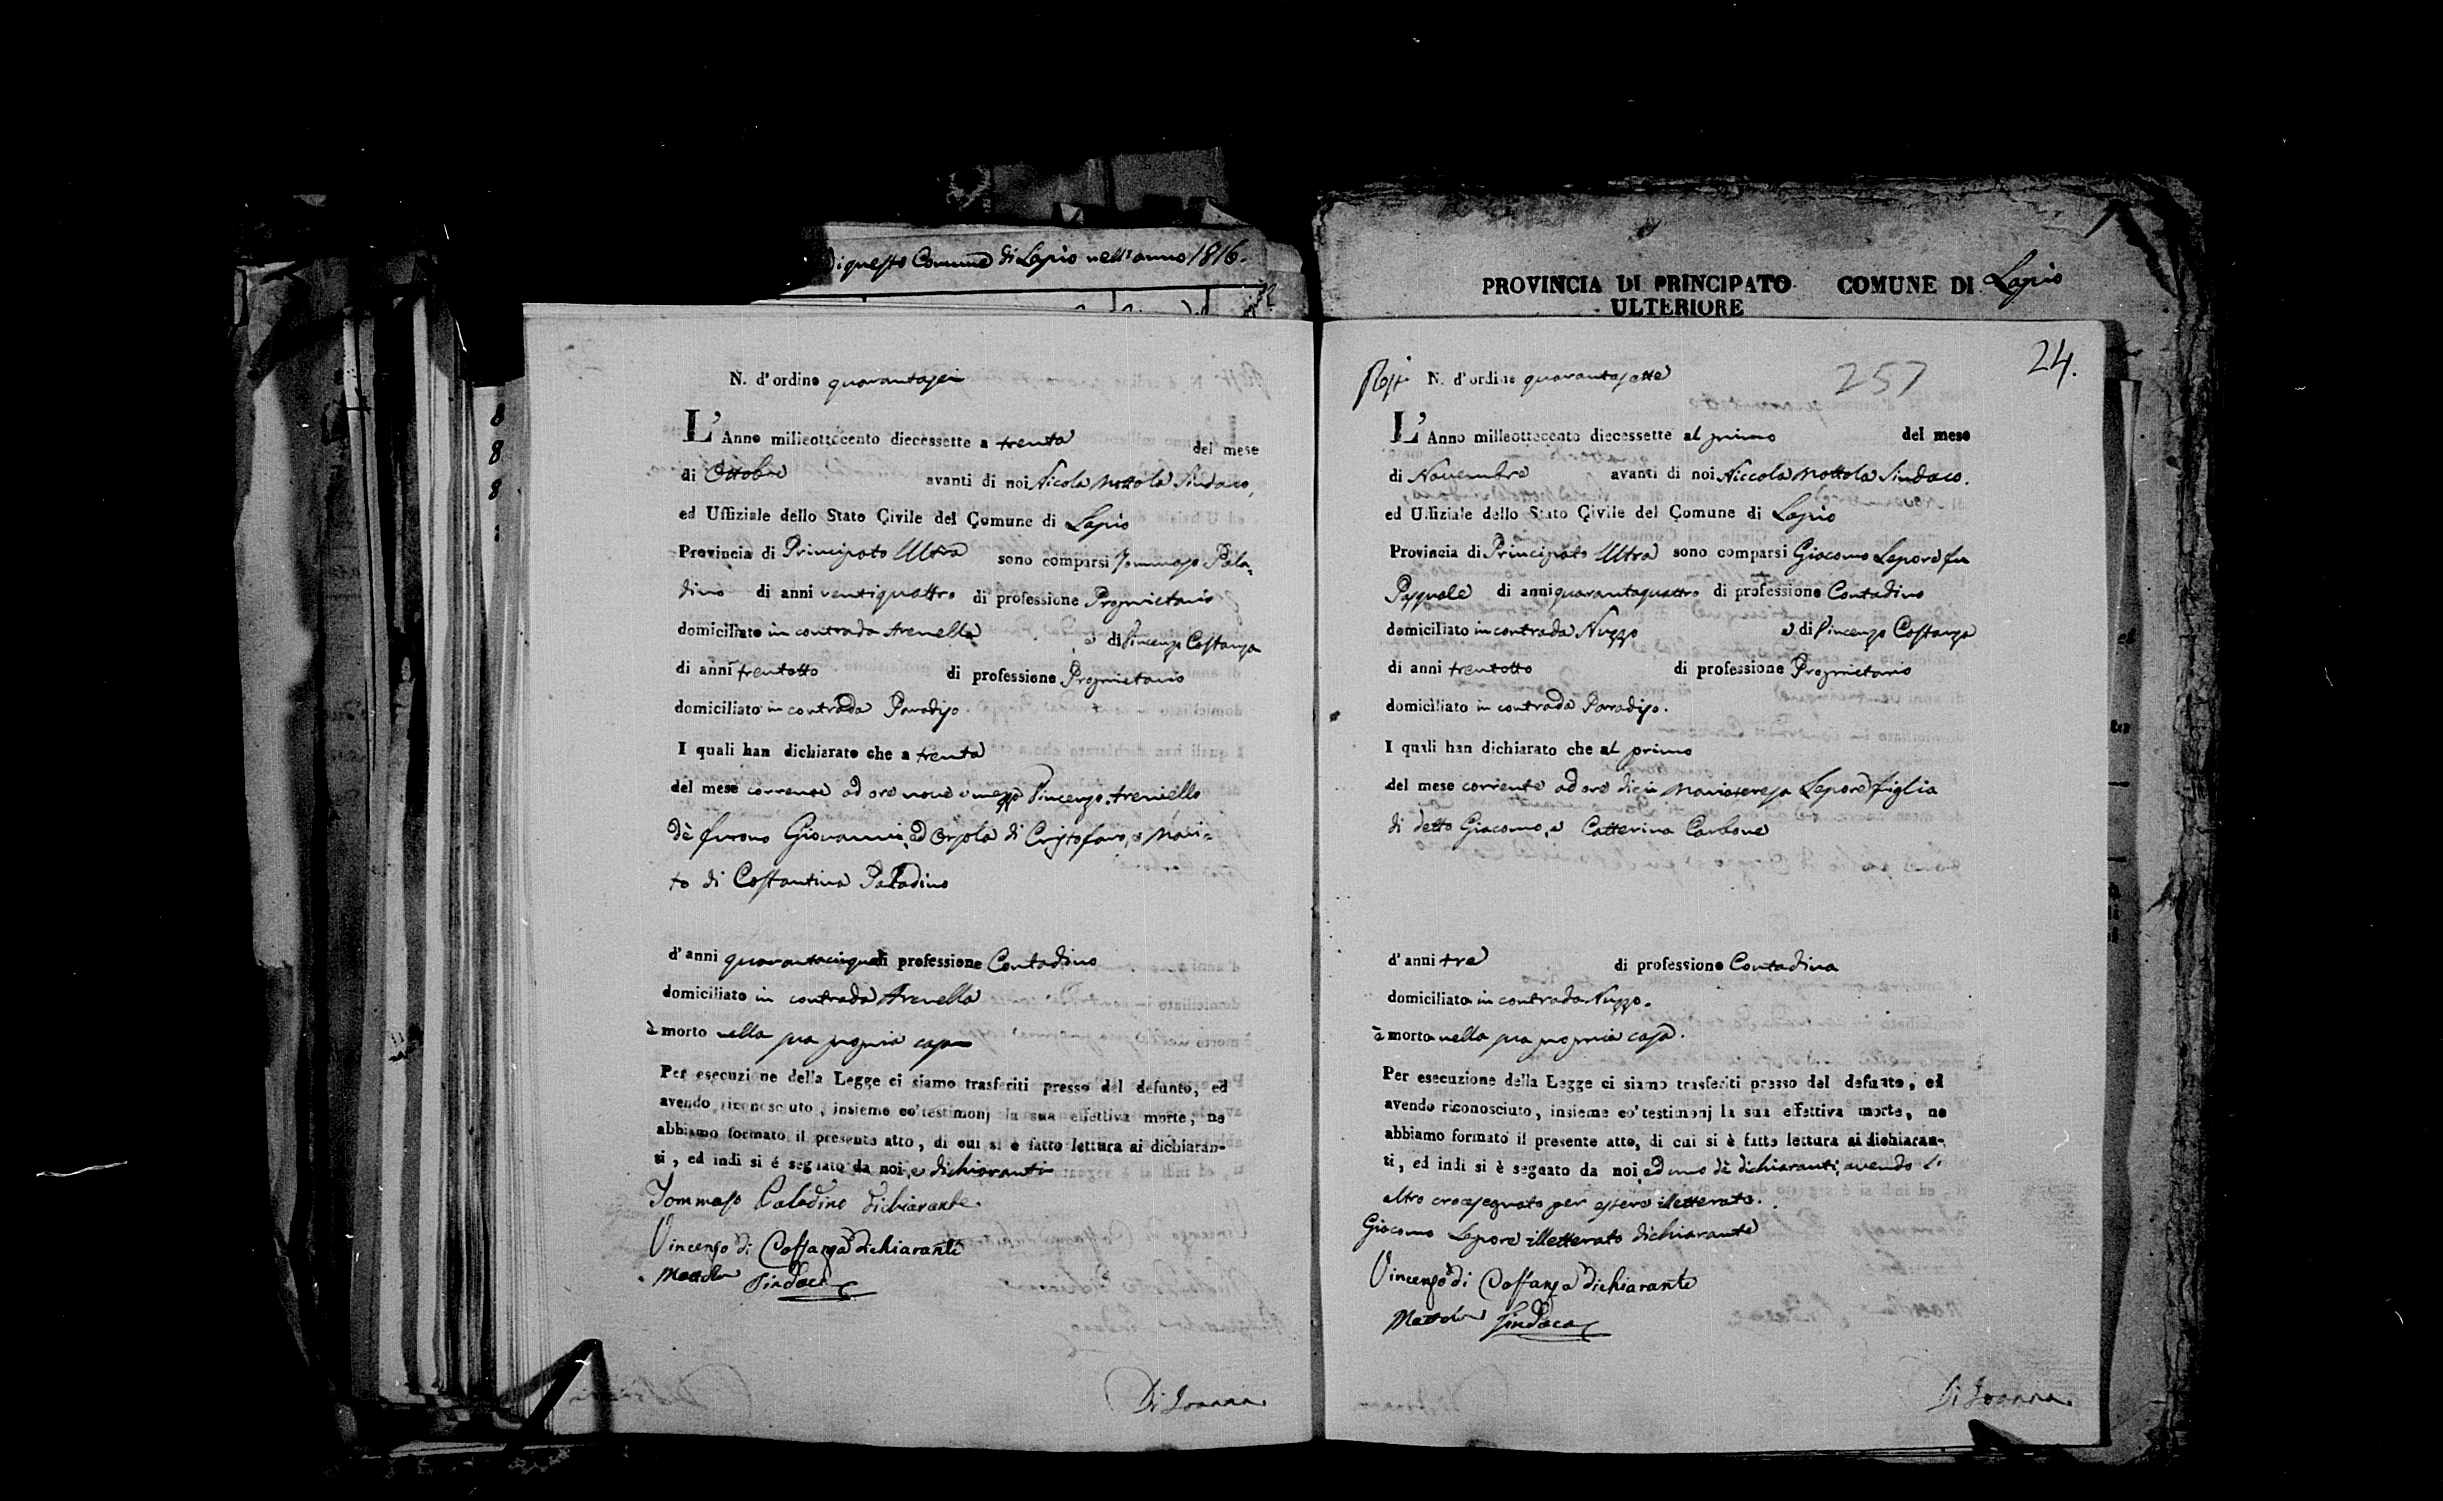 di questo Comune di Lapio nell'anno 1816.
PROVINCIA DI PRINCIPATO COMUNE DI Lapio
ULTERIORE
8
8
8
N. d'ordine quarantasei
L'Anno milleottocento diecessette a trenta del mese
di Ottobre avanti di noi Nicola Mottola Sindaco,
ed Uffiziale dello Stato Civile del Comune di Lapio
Provincia di Principato Ultra sono comparsi Tommaso Pala-
dino di anni ventiquattro di professione Proprietario
domiciliato in contrada Arenella e di Vincenzo Costanza
di anni trentotto di professione Proprietario
domiciliato in contrada Paradiso.
I quali han dichiarato che a trenta
del mese corrente ad ore nove e mezza Vincenzo Areniello
de furono Giovanni, ed Orsola di Cristofaro, e Mari-
to di Costantina Paladino
d'anni quarantacinque di professione Contadino
domiciliato in contrada Arenella
è morto nella sua propria casa
Per esecuzione della Legge ci siamo trasferiti presso del defunto, ed
avendo riconosciuto, insieme co' testimonj la sua effettiva morte, ne
abbiamo formato il presente atto, di cui si è fatto lettura ai dichiaran-
ti, ed indi si é segnato da noi, e dichiaranti
Tommaso Paladino dichiarante.
Vincenzo di Costanza dichiarante
Mottola Sindaco
Di Ioanna.
24.
N. d'ordine quarantasette 257
L'Anno milleottocento diecessette al primo del mese
di Novembre avanti di noi Niccola Mottola Sindaco.
ed Uffiziale dello Stato Civile del Comune di Lapio
Provincia di Principato Ultra sono comparsi Giacomo Lepore fu
Pasquale di anni quarantaquattro di professione Contadino
domiciliato in contrada Nuzzo e di Vincenzo Costanza
di anni trentotto di professione Proprietario
domiciliato in contrada Parradiso.
I quali han dichiarato che al primo
del mese corrente ad ore dieci Mariateresa Lepore figlia
di detto Giacomo, e Catterina Carbone
d'anni tre di professione Contadina
domiciliata in contrada Nuzzo.
è morta nella sua propria casa.
Per esecuzione della Legge ci siamo trasferiti presso del defunto, ed
avendo riconosciuto, insieme co' testimonj la sua effettiva morte, ne
abbiamo formato il presente atto, di cui si è fatto lettura ai dichiaran-
ti, ed indi si è segnato da noi, ed uno de dichiaranti, avendo l'
altro crocesegnato per essere illetterato.
Giacomo Lepore illetterato dichiarante
Vincenzo di Costanza dichiarante
Mottola Sindaco
Di Ioanna.